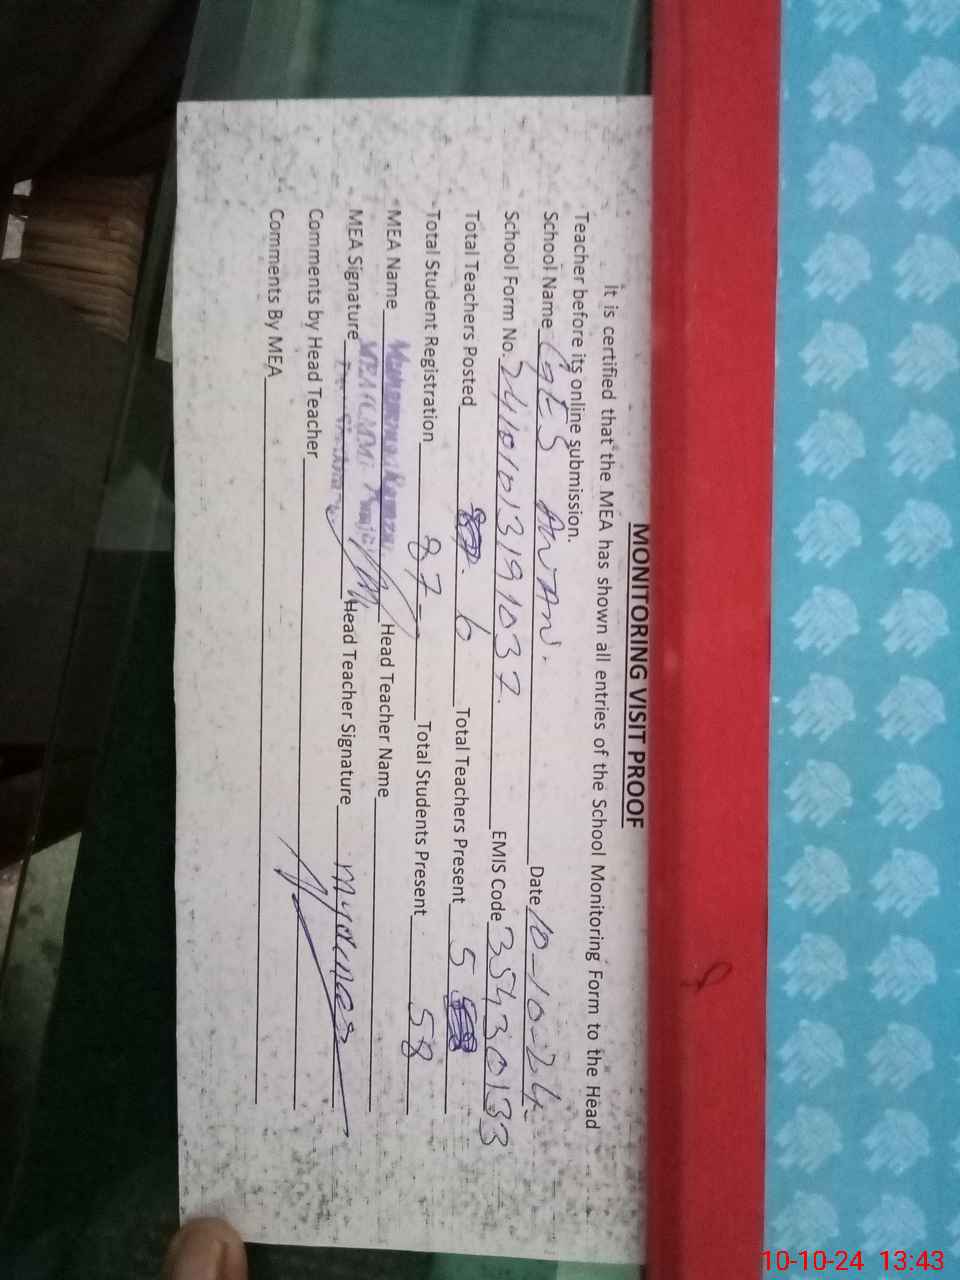 MONITORING VISIT PROOF
It is certified that the MEA has shown all entries of the School Monitoring Form to the Head
Teacher before its online submission.
School Name GES AWAN. Date 10-10-24
School Form No. 24101013191037. EMIS Code 35430133
Total Teachers Posted 6 Total Teachers Present 5
Total Student Registration 87 Total Students Present 58
MEA Name Head Teacher Name
MEA Signature Head Teacher Signature
Comments by Head Teacher
Comments By MEA
10-10-24 13:43